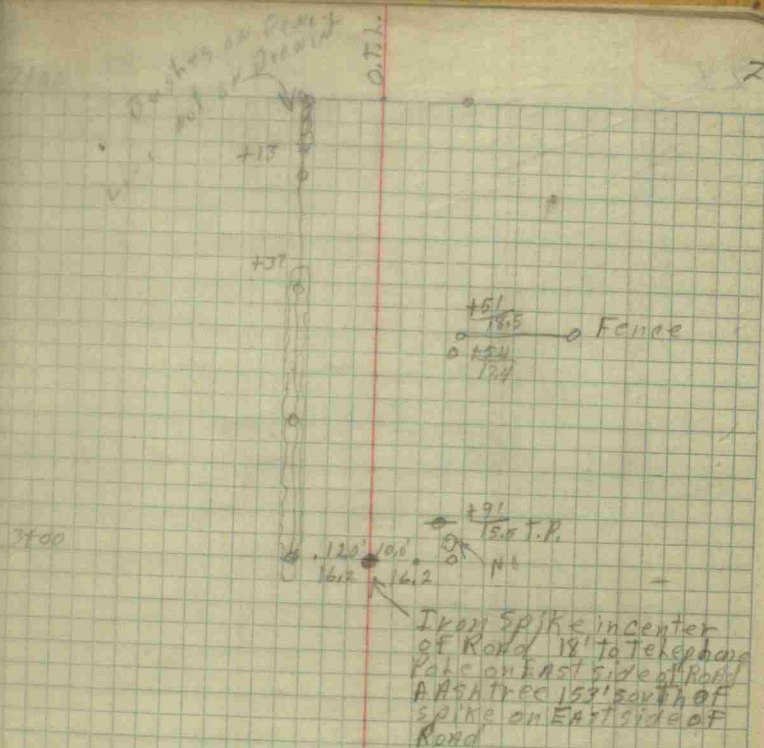 O.T.L.
2
Bushes on Fence
not on Drain
+13
+37
+51
18.5
Fence
+54
17.4
+91
15.5 T.P.
3+00
12.0' 10.0'
16.2 16.2
No
Iron Spike in center
of Road 18' to Telephone
Pole on EAST side of Road
A Ash tree 153' south of
spike on EAST side of
Road